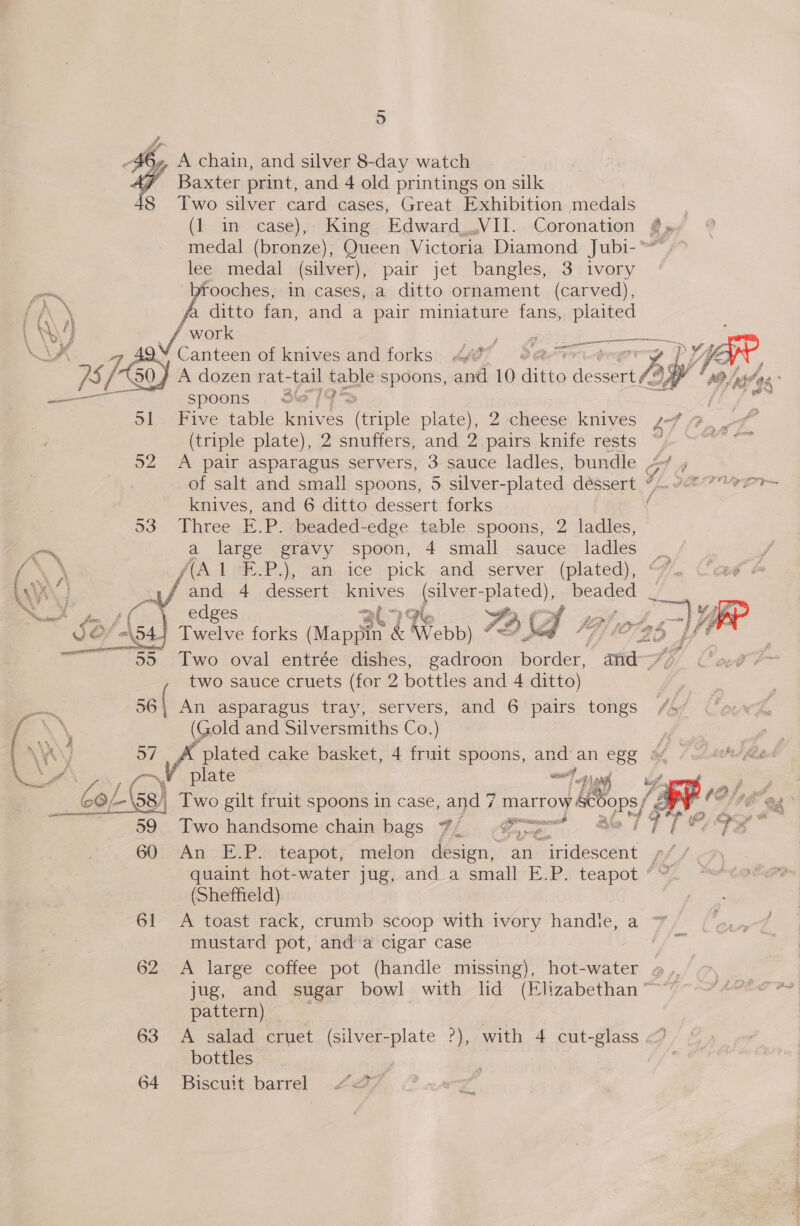 5
46 A chain, and silver 8-day watch
47 Baxter print, and 4 old printings on silk
48 Two silver card cases, Great Exhibition medals
(1 in case), King Edward VII. Coronation
medal (bronze), Queen Victoria Diamond Jubi-
lee medal (silver), pair jet bangles, 3 ivory
brooches, in cases, a ditto ornament (carved),
a ditto fan, and a pair miniature fans, plaited
work
49 Canteen of knives and forks
75/- 50 A dozen rat-tail table spoons, and 10 ditto dessert
spoons
51 Five table knives (triple plate), 2 cheese knives
(triple plate), 2 snuffers, and 2 pairs knife rests
52 A pair asparagus servers, 3 sauce ladles, bundle
of salt and small spoons, 5 silver-plated dessert
knives, and 6 ditto dessert forks
53 Three E.P. beaded-edge table spoons, 2 ladles,
a large gravy spoon, 4 small sauce ladles
(A 1 E.P.), an ice pick and server (plated),
and 4 dessert knives (silver-plated), beaded
edges
50/- 54 Twelve forks (Mappin & Webb)
55 Two oval entrée dishes, gadroon border, and
two sauce cruets (for 2 bottles and 4 ditto)
56 An asparagus tray, servers, and 6 pairs tongs
(Gold and Silversmiths Co.)
57 A plated cake basket, 4 fruit spoons, and an egg
plate
60/- 58 Two gilt fruit spoons in case, and 7 marrow scoops
59 Two handsome chain bags
60 An E.P. teapot, melon design, an iridescent
quaint hot-water jug, and a small E.P. teapot
(Sheffield)
61 A toast rack, crumb scoop with ivory handle, a
mustard pot, and a cigar case
62 A large coffee pot (handle missing), hot-water
jug, and sugar bowl with lid (Elizabethan
pattern)
63 A salad cruet (silver-plate ?), with 4 cut-glass
bottles
64 Biscuit barrel